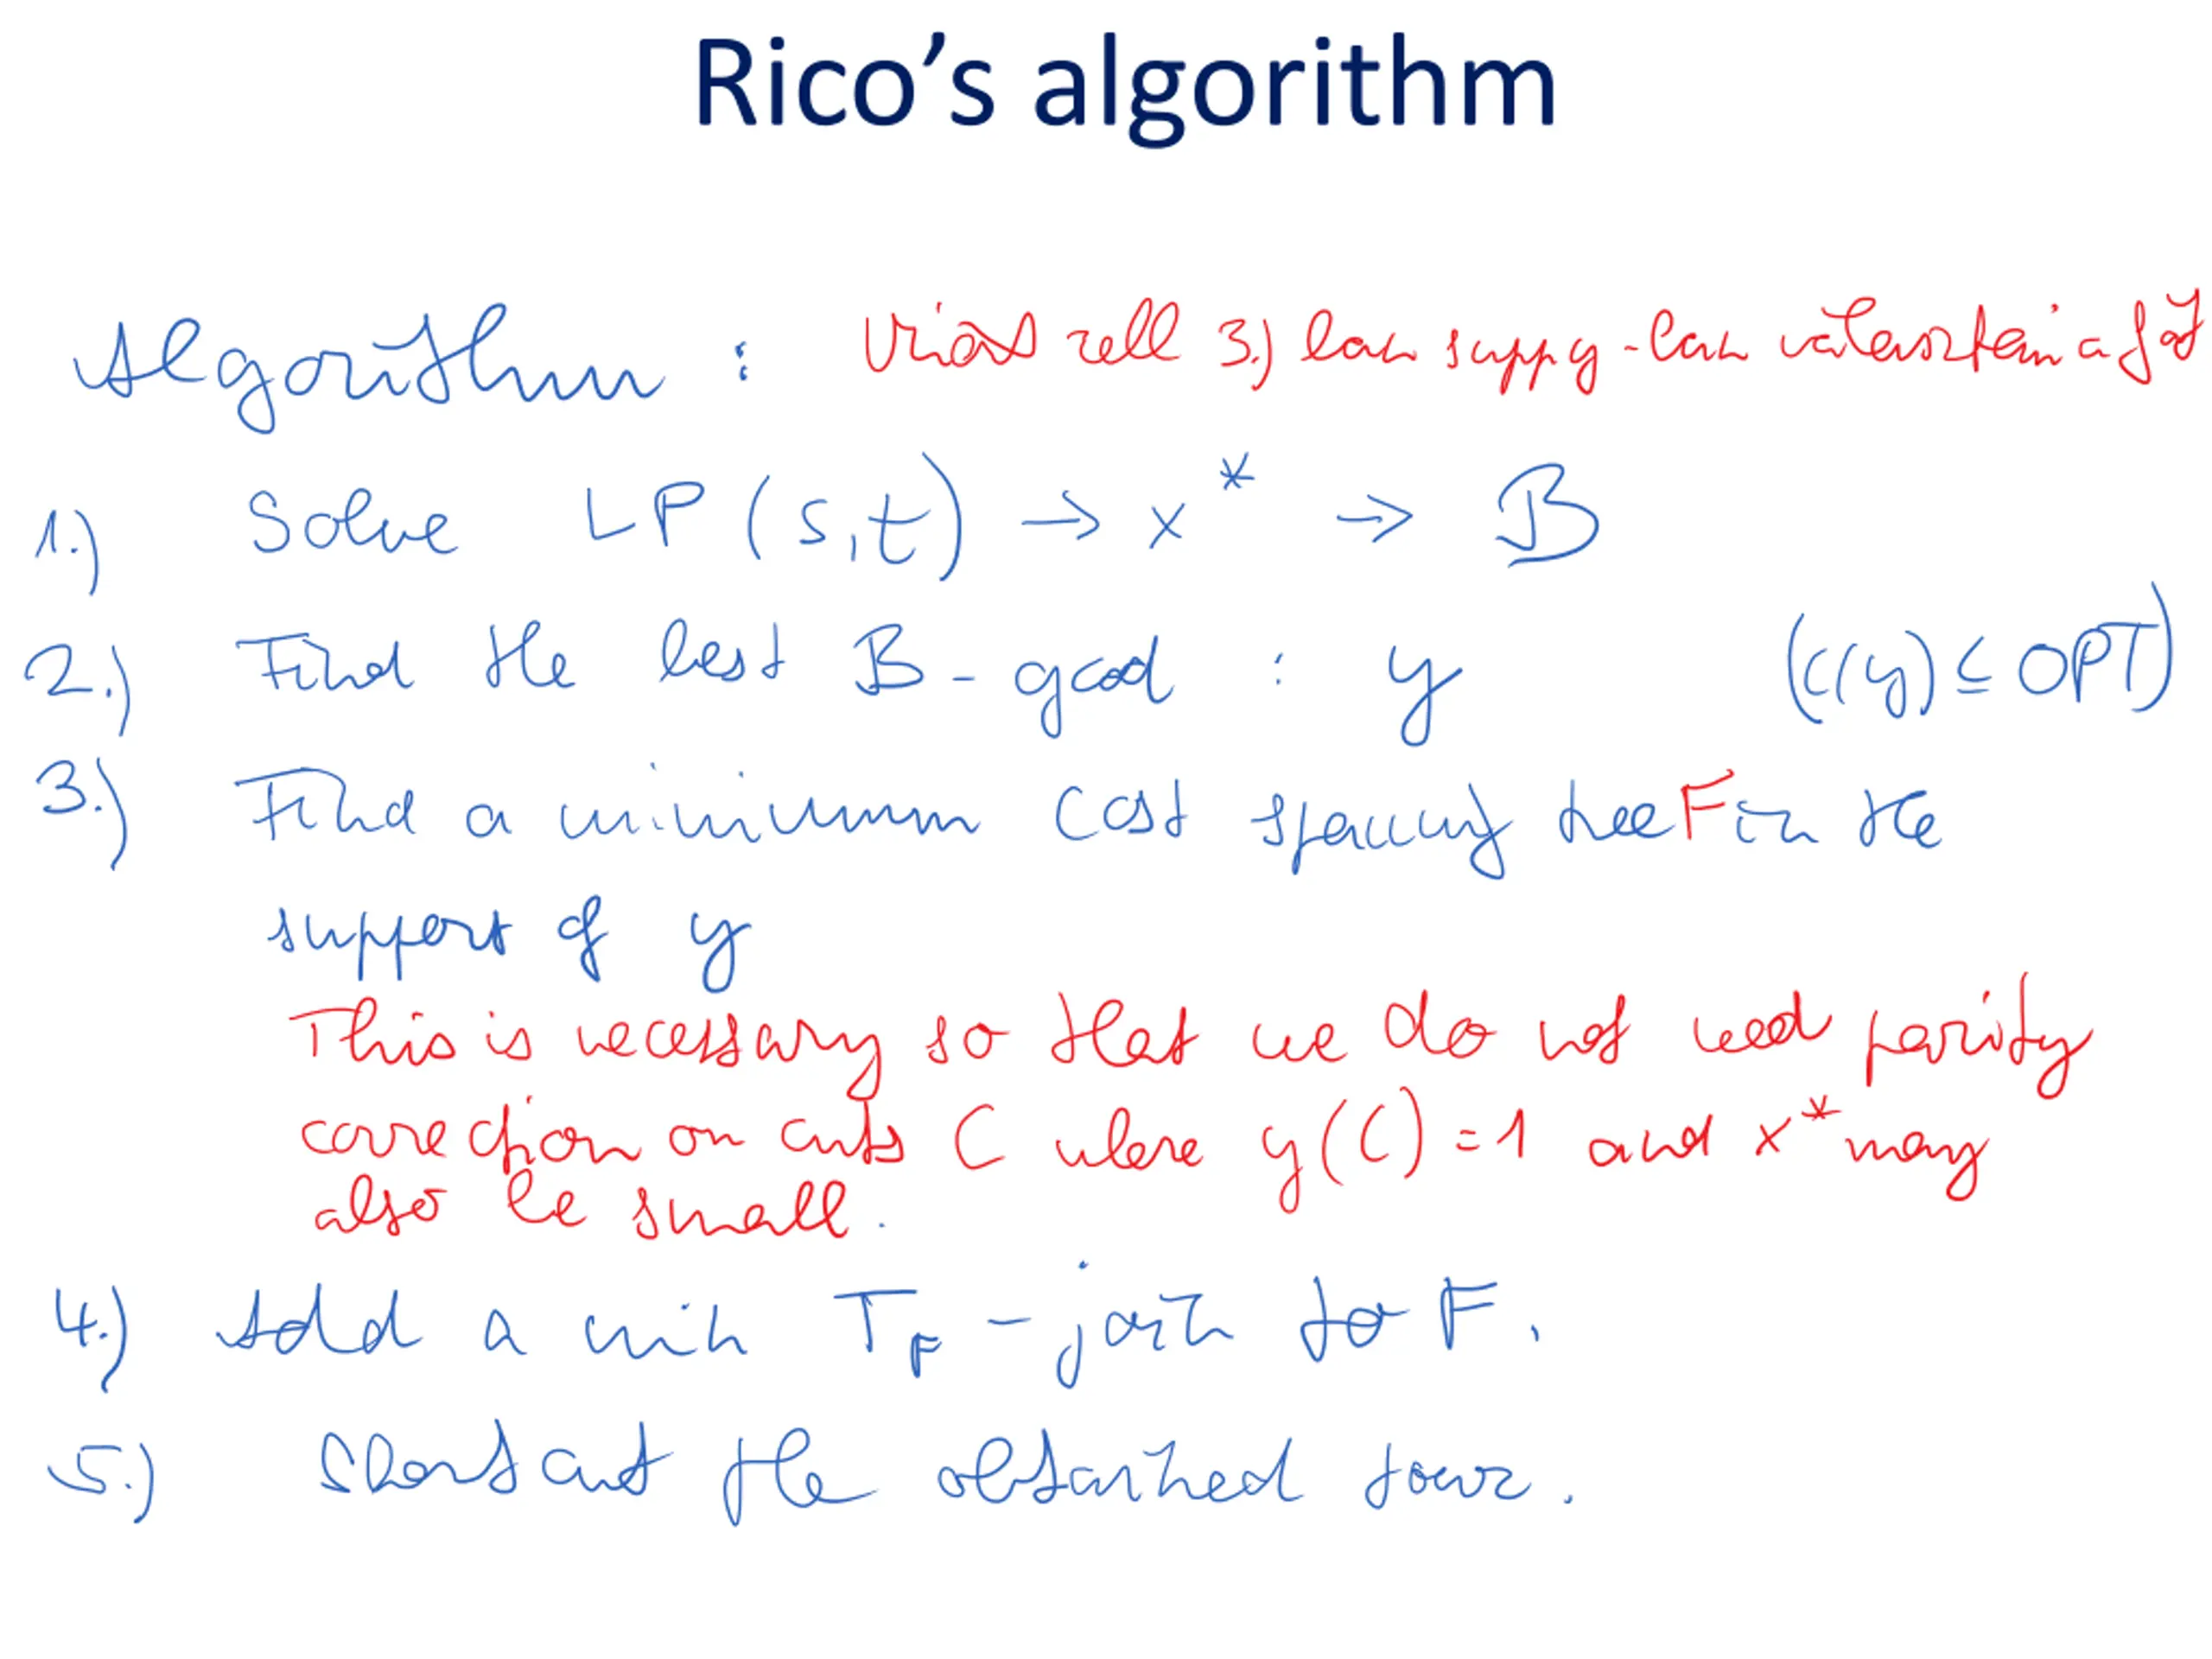 Rico's algorithm
Algorithm : Miért kell 3.) supp y -ban a fát
1.) Solve LP(s,t) → x* → B
2.) Find the best B-good : y (c(y) ≤ OPT)
3.) Find a minimum cost spanning tree F in the
support of y
This is necessary so that we do not need parity
correction on cuts C where y(C)=1 and x* may
also be small.
4.) Add a min T_F - join to F.
5.) Shortcut the obtained tour.